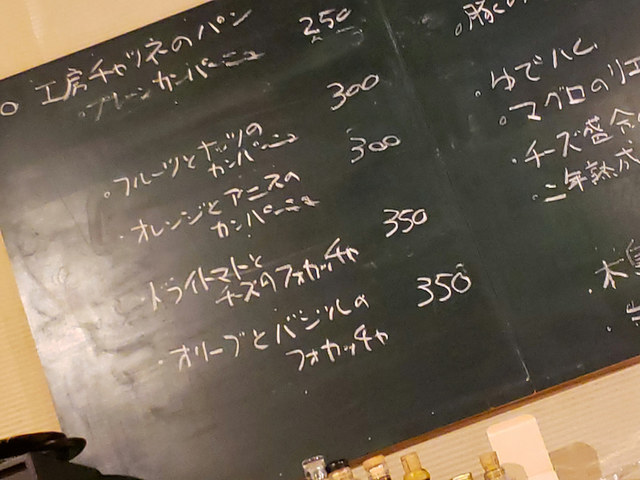 ○ 工房チャツネのパン
・プレーンカンパーニュ 250
・フルーツとナッツの
カンパーニュ 300
・オレンジとアニスの
カンパーニュ 300
・ドライトマトと
チーズのフォカッチャ 350
・オリーブとバジルの
フォカッチャ 350
・ゆでハム
・マグロのリエ
・チーズ盛合
・二年熟成